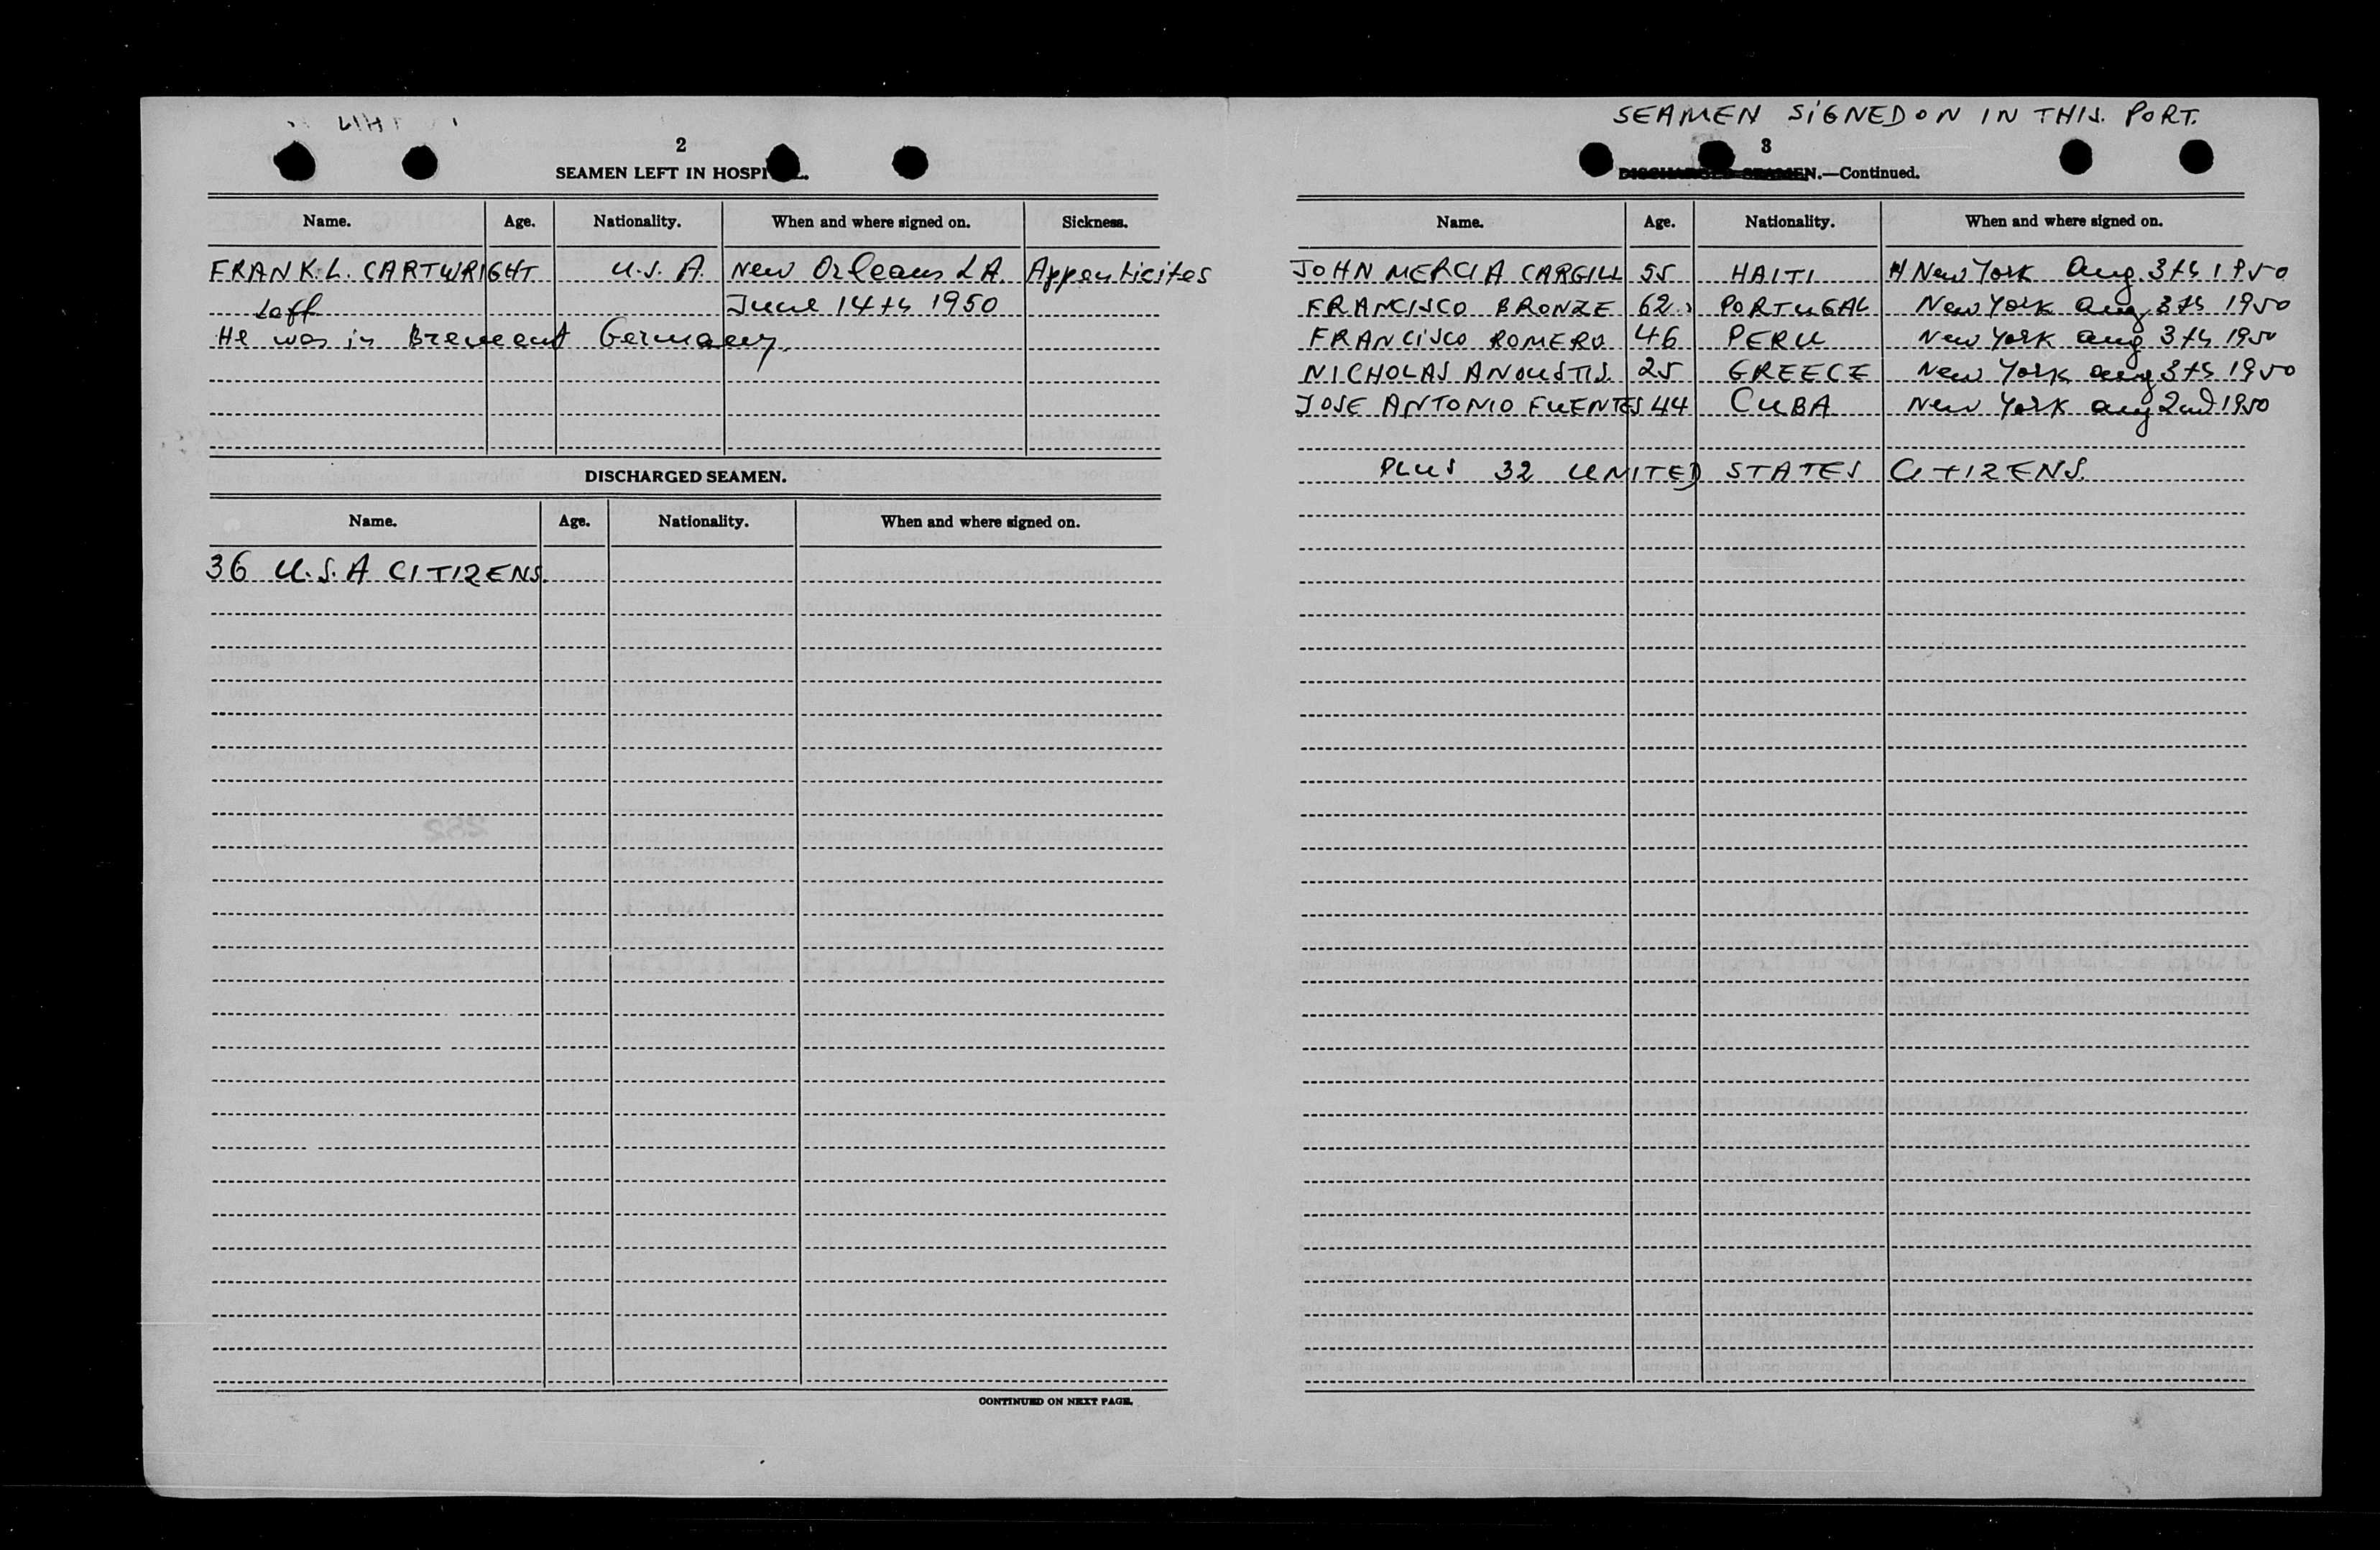 2
SEAMEN LEFT IN HOSPI L.
Name. Age. Nationality. When and where signed on. Sickness.
FRANK. L. CARTWRIGHT U.S.A. New Orleans LA. Appenticites
Left June 14th 1950
He was in Germany.
DISCHARGED SEAMEN.
Name. Age. Nationality. When and where signed on.
36 U.S.A CITIZENS.
CONTINUED ON NEXT PAGE.
SEAMEN SIGNED ON IN THIS. PORT.
3
DISCHARGED SEAMEN.—Continued.
Name. Age. Nationality. When and where signed on.
JOHN MERCIA CARGILL 55 HAITI New York Aug. 3th 1950
FRANCISCO BRONZE 62 PORTUGAL New York Aug 3th 1950
FRANCISCO ROMERO 46 PERU New York Aug 3th 1950
NICHOLAS ANOUSTIS. 25 GREECE New York Aug 3th 1950
JOSE ANTONIO FUENTES 44 CUBA New York Aug 2nd 1950
PLUS 32 UNITED STATES CITIZENS.